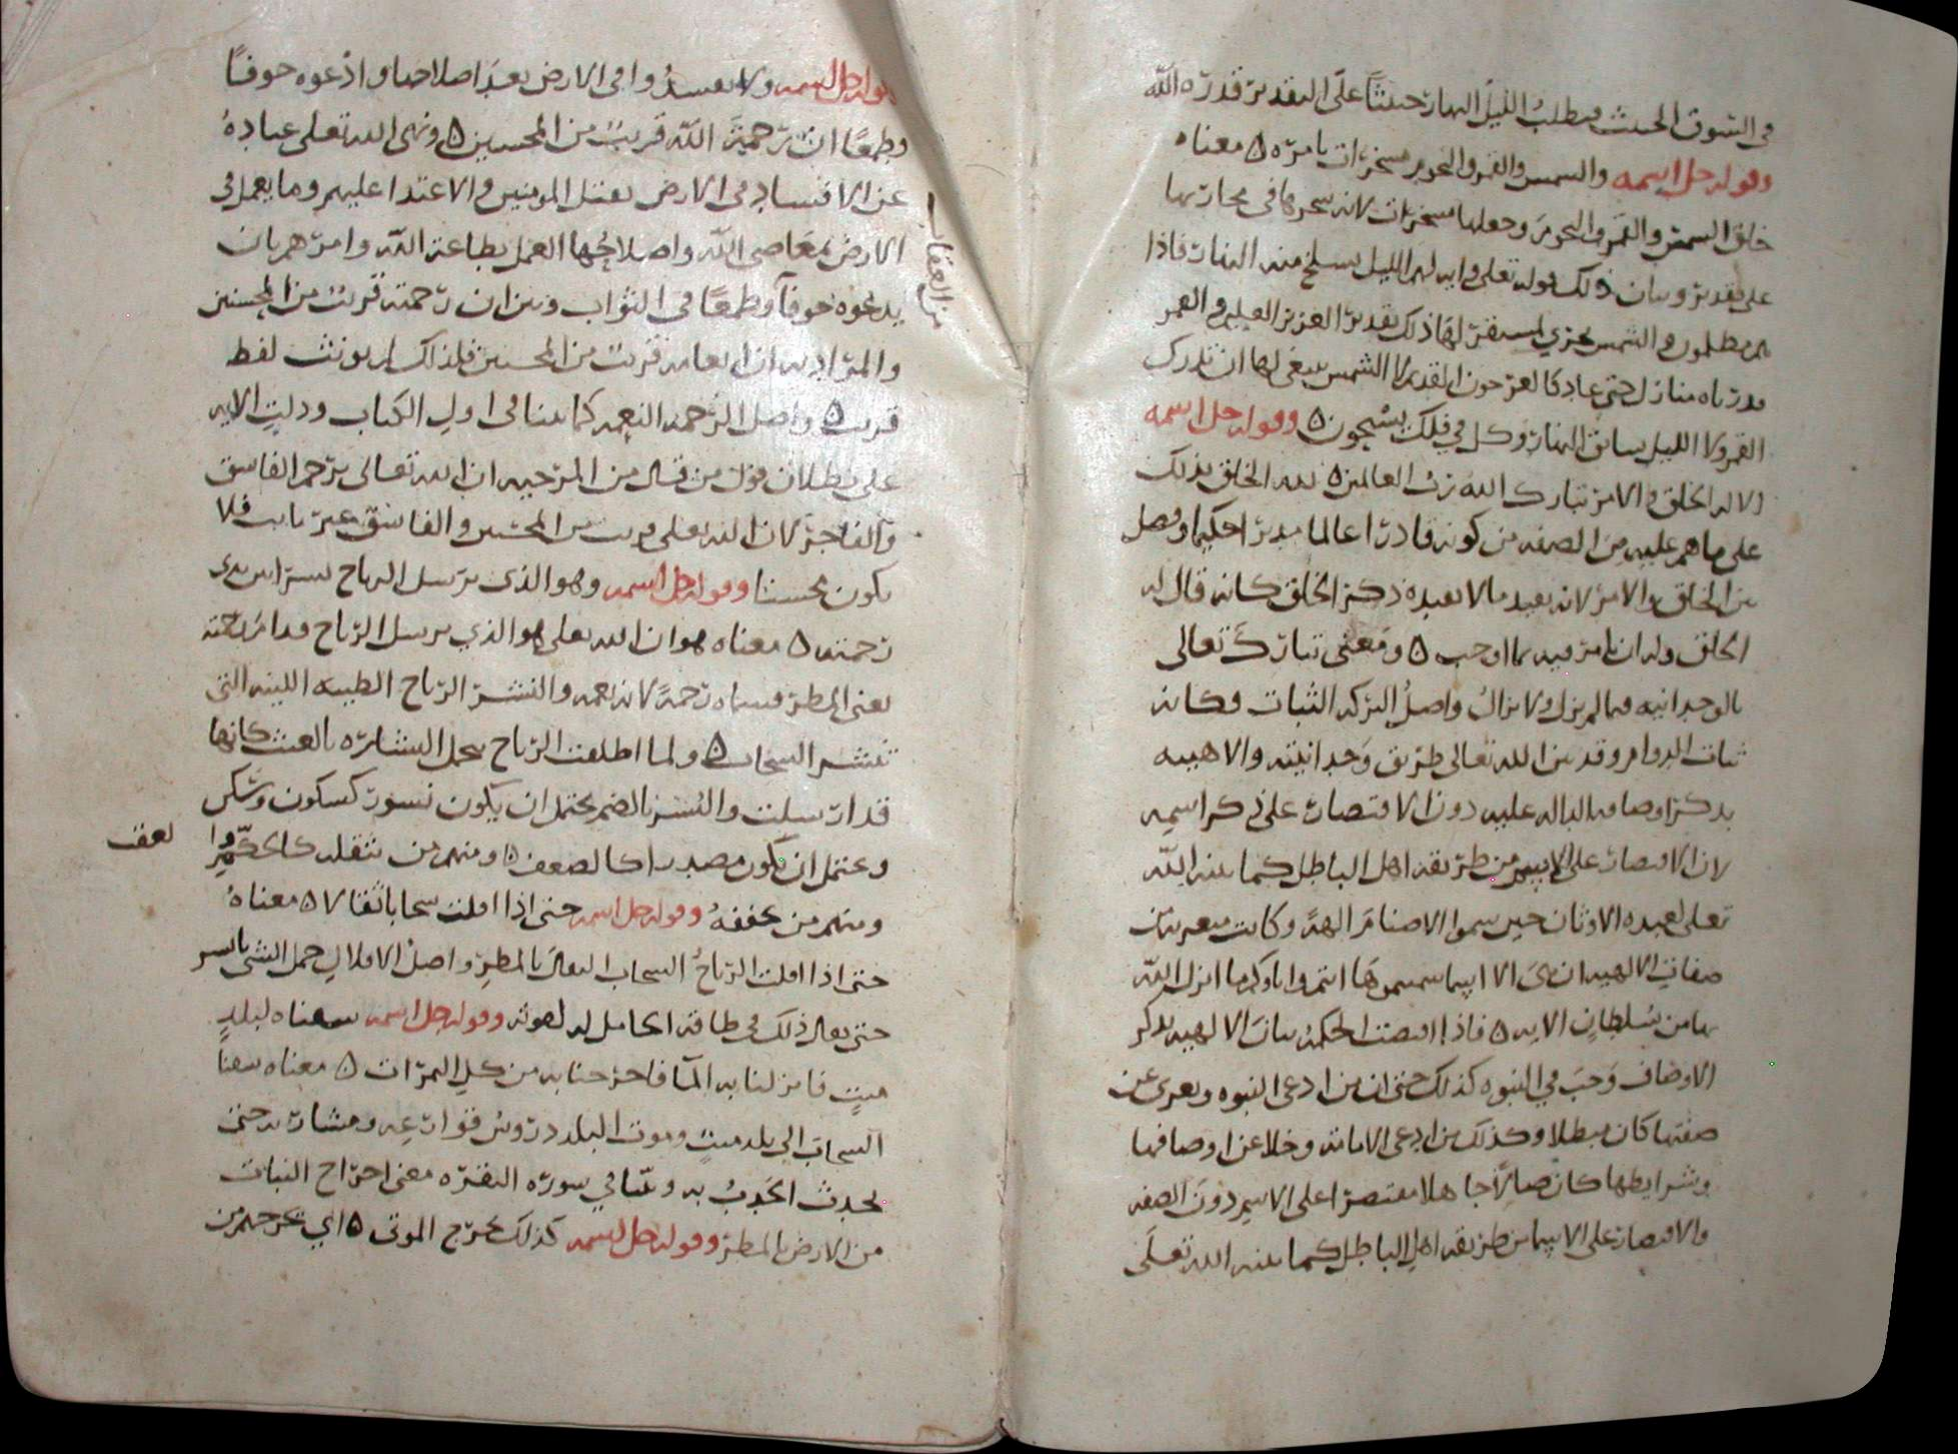 في السوق الحثيث فيطلب الليل النهار حثيثا على التقدير قدره الله
وقوله جل اسمه والشمس والقمر والنجوم مسخرات بامره ٥ معناه
خلق الشمس والقمر والنجوم وجعلها مسخرات لانه سخرها في مجاريها
على تقدير وبيان ذلك قوله تعلى وايه لهم الليل نسلخ منه النهار فاذا
هم مظلمون والشمس تجري لمستقر لها ذلك تقدير العزيز العليم والقمر
قدرناه منازل حتى عاد كالعرجون القديم لا الشمس ينبغي لها ان تدرك
القمر ولا الليل سابق النهار وكل في فلك يسبحون ٥ وقوله جل اسمه
الا له الخلق والامر تبارك الله رب العالمين ٥ لله الخلق بذلك
على ما هم عليه من الصفه من كونه قادرا عالما مدبرا حكيما وفصل
بين الخلق والامر لانه يفيد ما لا يفيده ذكر الخلق كانه قال له
الخلق وله ان يامر فيه بما اوجب ٥ ومعنى تبارك تعالى
بالوحدانيه فيما لم يزل ولا يزال واصل البركه الثبات فكانه
ثبات الدوام وقد بين الله تعالى طريق وحدانيته والاهيته
بذكر اوصافه الداله عليه دون الاقتصار على ذكر اسمه
لان الاقتصار على الاسم من طريقه اهل الباطل كما بينه الله
تعلى لعبده الاوثان حين سموا الاصنام الهة وكانت متعريه من
صفات الالهيه ان هي الا اسما سميتموها انتم واباوكم ما انزل الله
بها من سلطان الايه ٥ فاذا اقتضت الحكمه بيان الالهيه بذكر
الاوصاف وجب في النبوه كذلك حتى ان من ادعى النبوه وتعرى عن
صفتها كان مبطلا وكذلك من ادعى الامامه وخلا عن اوصافها
وشرايطها كان ضالا جاهلا مقتصرا على الاسم دون الصفه
والاقتصار على الاسما من طريقه اهل الباطل كما بينه الله تعلى
وقوله جل اسمه ولا تفسدوا في الارض بعد اصلاحها وادعوه خوفا
وطمعا ان رحمة الله قريب من المحسنين ٥ ونهى الله تعلى عباده
عن الافساد في الارض بقتل المومنين والاعتدا عليهم وما يعمل في
الارض بمعاصي الله واصلاحها العمل بطاعة الله وامرهم بان
يدعوه خوفا وطمعا في الثواب وبين ان رحمته قريب من المحسنين
من العقاب
والمراد به ان انعامه قريب من المحسنين فلذلك لم يونث لفظ
قريب ٥ واصل الرحمه النعمه كما بينا في اول الكتاب ودلت الايه
على بطلان قول من قال من المرجيه ان الله تعالى يرحم الفاسق
والفاجر لان الله تعلى قريب من المحسنين والفاسق غير تايب فلا
يكون محسنا وقوله جل اسمه وهو الذي يرسل الرياح نشرا بين يدى
رحمته ٥ معناه هو ان الله تعلى هو الذي يرسل الرياح قدام رحمته
يعني المطر فسماه رحمة لانه نعمه والنشر الرياح الطيبه اللينه التي
تنشر السحاب ٥ ولما اطلقت الرياح تحمل البشاره بالغيث كانها
قد ارسلت والنشر بالضم يحتمل ان يكون نسور كسكون وشكر
ويحتمل ان يكون مصدرا كالضعف ٥ ومنهم من يثقله
لعقب
ومنهم من يخففه وقوله جل اسمه حتى اذا اقلت سحابا ثقالا ٥ معناه
حتى اذا اقلت الرياح السحاب الثقال بالمطر واصل الاقلال حمل الشي باسر
حتى يقال ذلك في طاقه الحامل له لقوته وقوله جل اسمه سقناه لبلد
ميت فانزلنا به الما فاخرجنا به من كل الثمرات ٥ معناه سقنا
السحاب الى بلد ميت وموت البلد دروس قوارعه ومشاربه حتى
يحدث الجدب به وبينا في سورة البقره معنى اخراج النبات
من الارض بالمطر وقوله جل اسمه كذلك نخرج الموتى ٥ اي نخرجهم من